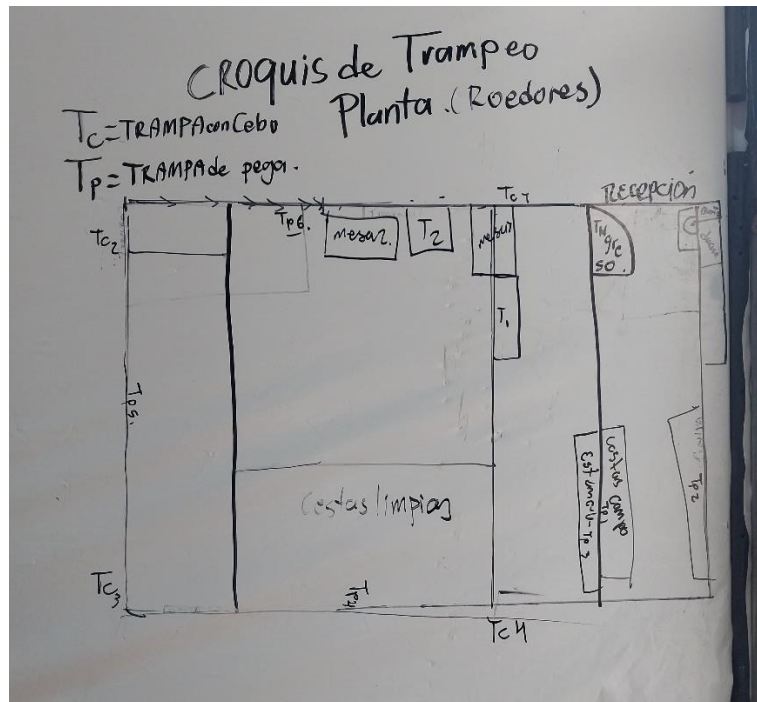 CROQUIS de Trampeo
Planta. (Roedores)
Tc=TRAMPA con Cebo
Tp=TRAMPA de pega.
RECEPCIÓN
Tc1
Tc2
Tp6.
mesa2.
T2
mesa1
INgre
so.
T1
Tp5.
Costras Campo
Tp1
Tp3
Tp2
Cestas limpias
Tc3
Tp4
Tc4